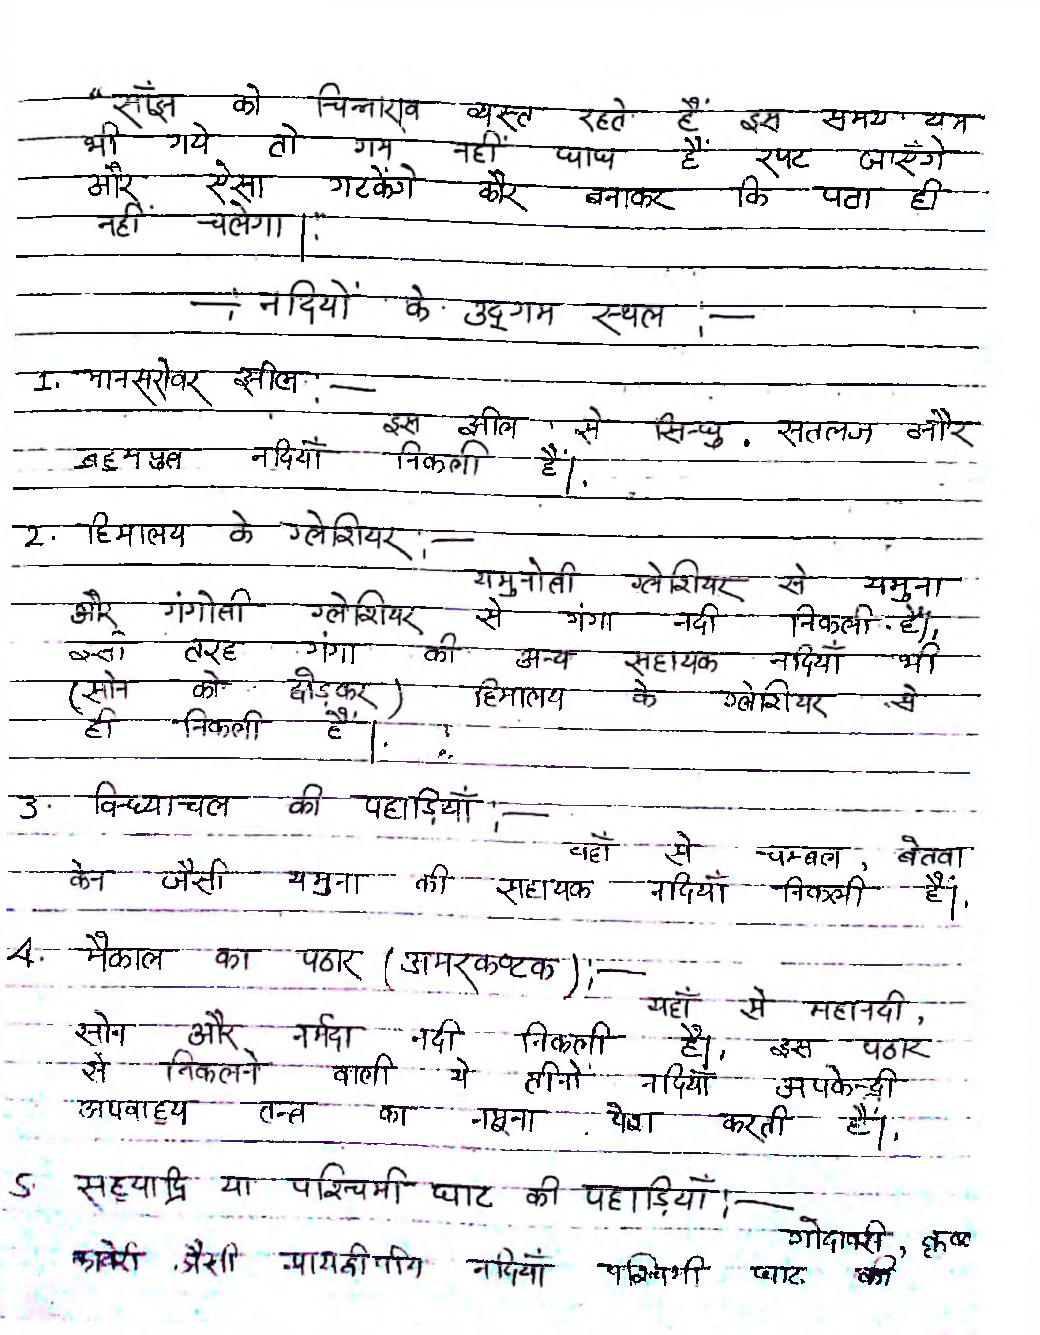 "साँझ को चिन्नाराव व्यस्त रहते हैं इस समय यम
भी गये तो गम नहीं घाघ हैं रपट जाएँगे
और ऐसा गटकेंगे कौर बनाकर कि पता ही
नहीं चलेगा।"
—: नदियों के उद्गम स्थल :—
1. मानसरोवर झील :—
इस झील से सिन्धु, सतलज और
ब्रह्मपुत्र नदियाँ निकली हैं।
2. हिमालय के ग्लेशियर :—
यमुनोत्री ग्लेशियर से यमुना
और गंगोत्री ग्लेशियर से गंगा नदी निकली है।
इसी तरह गंगा की अन्य सहायक नदियाँ भी
(सोन को छोड़कर) हिमालय के ग्लेशियर से
ही निकली हैं।
3. विन्ध्याचल की पहाड़ियाँ :—
यहाँ से चम्बल, बेतवा
केन जैसी यमुना की सहायक नदियाँ निकली हैं।
4. मैकाल का पठार (अमरकण्टक) :—
यहाँ से महानदी,
सोन और नर्मदा नदी निकली है। इस पठार
से निकलने वाली ये तीनों नदियाँ अपकेन्द्री
अपवाह्य तन्त्र का नमूना पेश करती हैं।
5. सह्याद्रि या पश्चिमी घाट की पहाड़ियाँ :—
गोदावरी, कृष्णा
कावेरी जैसी प्रायद्वीपीय नदियाँ पश्चिमी घाट की